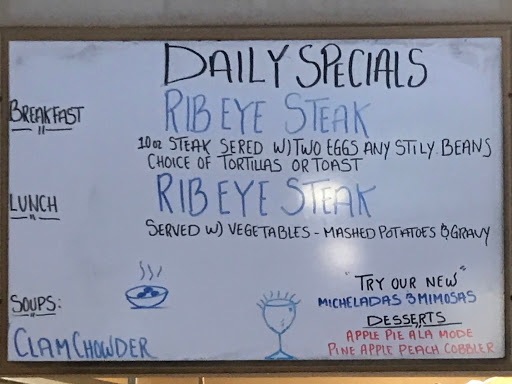 DAILY SPECIALS
BREAKFAST
RIB EYE STEAK
10 oz STEAK SERED W) TWO EGGS ANY STILY. BEANS
CHOICE OF TORTILLAS OR TOAST
LUNCH
RIB EYE STEAK
SERVED W) VEGETABLES - MASHED POTATOES & GRAVY
"TRY OUR NEW"
MICHELADAS & MIMOSAS
SOUPS:
DESSERTS
CLAM CHOWDER
APPLE PIE ALA MODE
PINE APPLE PEACH COBBLER